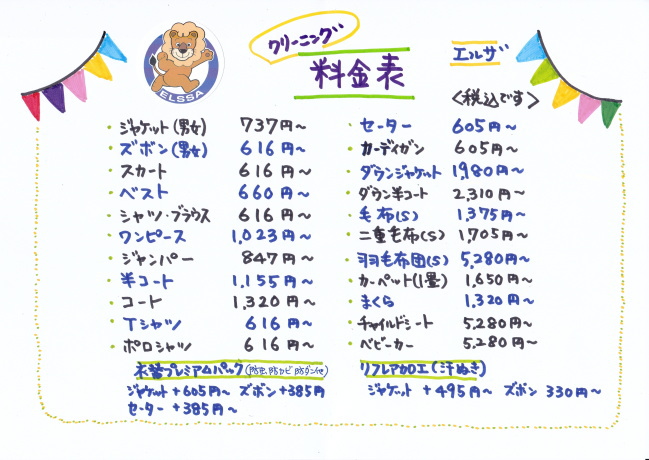 クリーニング
料金表
エルザ
ELSSA
<税込です>
・ジャケット(男女) 737円〜
・ズボン(男女) 616円〜
・スカート 616円〜
・ベスト 660円〜
・シャツ・ブラウス 616円〜
・ワンピース 1,023円〜
・ジャンパー 847円〜
・半コート 1,155円〜
・コート 1,320円〜
・Tシャツ 616円〜
・ポロシャツ 616円〜
・セーター 605円〜
・カーディガン 605円〜
・ダウンジャケット 1,980円〜
・ダウン半コート 2,310円〜
・毛布(S) 1,375円〜
・二重毛布(S) 1,705円〜
・羽毛布団(S) 5,280円〜
・カーペット(1畳) 1,650円〜
・まくら 1,320円〜
・チャイルドシート 5,280円〜
・ベビーカー 5,280円〜
衣替プレミアムパック(防虫、防カビ、防ダニ他)
ジャケット+605円〜 ズボン+385円
セーター +385円〜
リフレア加工(汗ぬき)
ジャケット +495円〜 ズボン 330円〜